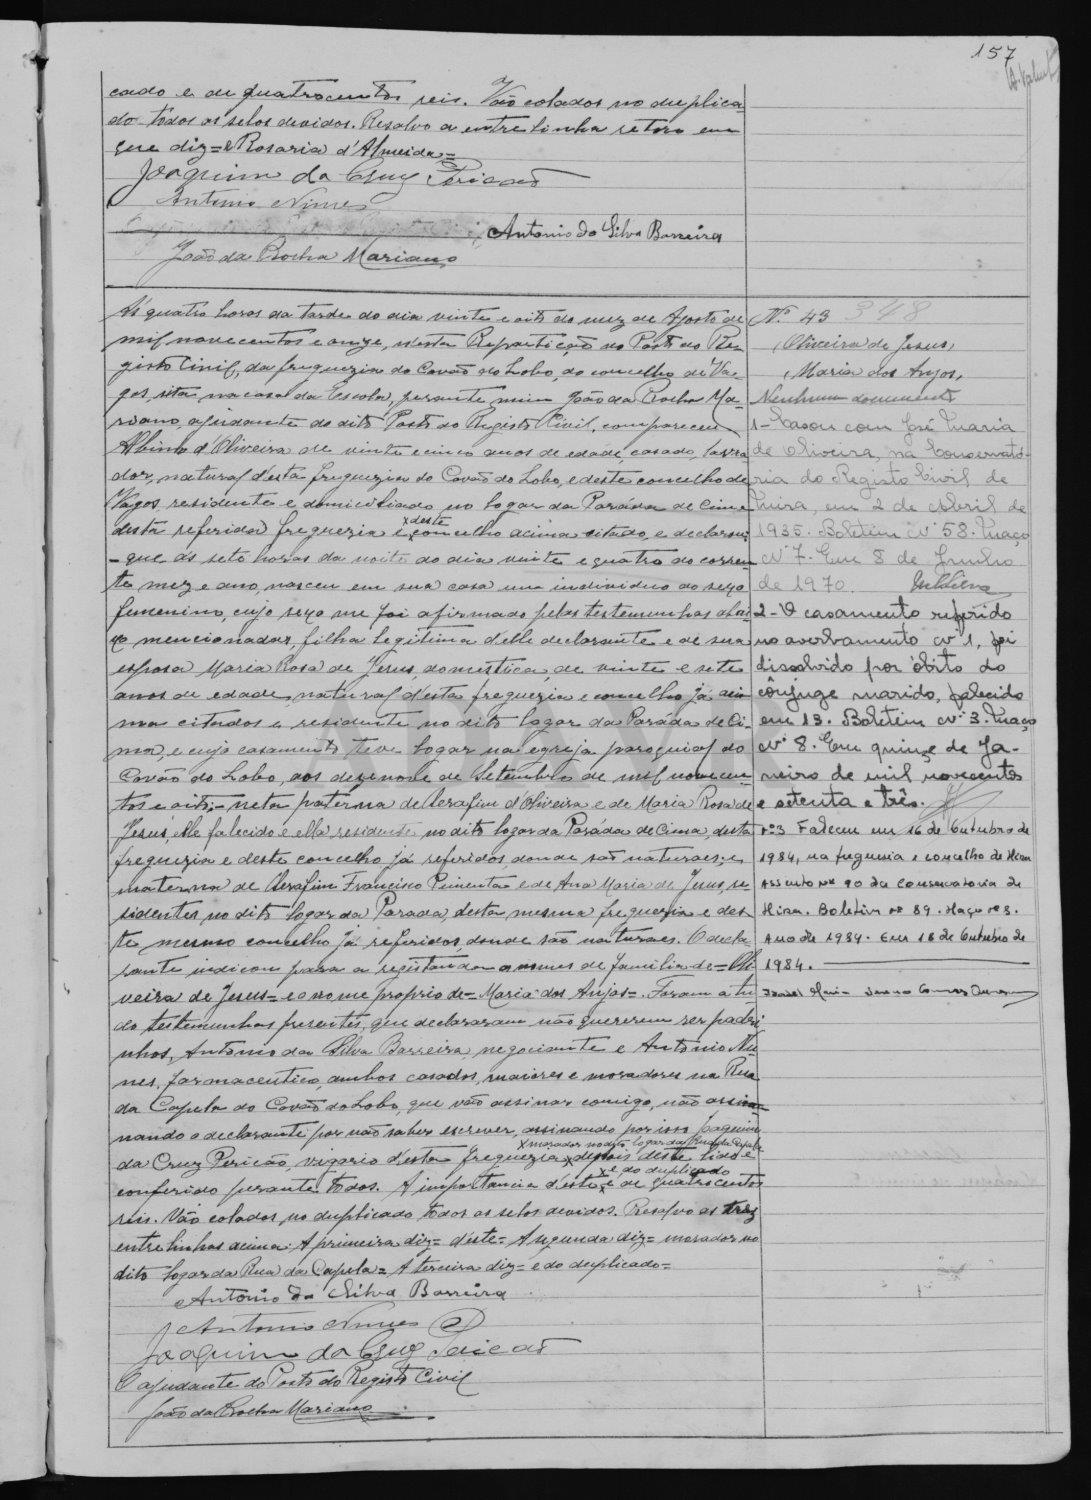 157
cado e de quatrocentos reis. Vão colados no duplica-
do todos os selos devidos. Resalvo a entrelinha retro em
que diz = e Rosaria d'Almeida =
Joaquim da Cruz Pericão
Antonio Nunes
Antonio da Silva Barreira
João da Rocha Mariano
Ás quatro horas da tarde do dia vinte e oito do mez de Agosto de
mil novecentos e onze, n'esta Repartição do Posto do Re-
gisto Civil, da freguezia do Covão do Lobo, do concelho de Va-
gos, sita na casa da Escola, perante mim João da Rocha Ma-
riano, ajudante do dito Posto do Registo Civil, compareceu
Albino d'Oliveira de vinte e cinco anos de edade, casado, lavra
dor, natural d'esta freguezia do Covão do Lobo, e deste concelho de
Vagos, residente e domiciliado no logar da Paráda de Cima
desta referida freguezia e x deste concelho acima citado, e declarou:
- que ás sete horas da noite do dia vinte e quatro do corren-
te mez e ano, nasceu em sua casa um individuo do sexo
femenino, cujo sexo me foi afirmado pelas testemunhas abai-
xo mencionadas, filha legitima d'elle declarante e de sua
esposa Maria Rosa de Jesus, domestica, de vinte e sete
anos de edade, natural d'esta freguezia e concelho já aci-
ma citados e residente no dito logar da Paráda de Ci-
ma, e cujo casamento teve logar na egreja paroquial do
Covão do Lobo, aos dezenove de Setembro de mil novecen-
tos e oito; - neta paterna de Serafim d'Oliveira e de Maria Rosa de
Jesus, elle falecido e ella residente no dito logar da Paráda de Cima, desta
freguezia e deste concelho já referidos, donde são naturaes; e
materna de Serafim Francisco Pimenta e de Ana Maria de Jesus, re-
sidentes no dito logar da Parada, desta mesma freguezia e des-
te mesmo concelho já referidos, donde são naturaes. O decla-
rante indicou para a registanda os nomes de familia de = Oli-
veira de Jesus = e o nome proprio de = Maria dos Anjos =. Foram a tu-
do testemunhas presentes, que declararam não quererem ser padri-
nhos, Antonio da Silva Barreira, negociante e Antonio Nu-
nes, farmaceutico, ambos casados, maiores e moradores na Rua
da Capela do Covão do Lobo, que vão assinar comigo, não assi-
nando o declarante por não saber escrever, assinando por isso Joaquim
x morador no dito logar da Rua da Capela
da Cruz Pericão, vigario d'esta freguezia x depois deste lido e
x e do duplicado
conferido perante todos. A importancia d'este x é de quatrocentos
reis. Vão colados no duplicado todos os selos devidos. Resalvo as tres
entrelinhas acima: A primeira diz = d'este = A segunda diz = morador no
dito logar da Rua da Capela = A terceira diz = e do duplicado =
Antonio da Silva Barreira
Antonio Nunes
Joaquim da Cruz Pericão
O ajudante do Posto do Registo Civil
João da Rocha Mariano
Nº 43 348
Oliveira de Jesus,
Maria dos Anjos,
Nenhum documento
1 - Casou com José Maria
de Oliveira, na Conservató-
ria do Registo Civil de
Mira, em 2 de Abril de
1935. Boletim Nº 58. Maço
Nº 7. Em 8 de Junho
de 1970.
2 - O casamento referido
no averbamento nº 1, foi
dissolvido por óbito do
cônjuge marido, falecido
em 13. Boletim Nº 3. Maço
Nº 8. Em quinze de Ja-
neiro de mil novecentos
e setenta e três.
Nº 3 Faleceu em 16 de Outubro de
1984, na freguesia e concelho de Mira
Assento nº 90 da Conservatoria de
Mira. Boletim nº 89. Maço nº 8.
Ano de 1984. Em 18 de Outubro de
1984.
ADAVR